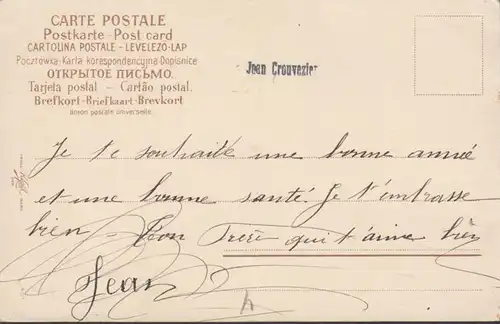 CARTE POSTALE
Postkarte - Post card
CARTOLINA POSTALE - LEVELEZÖ-LAP
Pocztówka - Karta korespondencyjna Dopisnice
ОТКРЫТОЕ ПИСЬМО.
Tarjeta postal - Cartão postal.
Brefkort - Briefkaart - Brevkort
Union postale universelle.
Jean Crouvezier
Je te souhaite une bonne année
et une bonne santé. Je t'embrasse
bien Ton Frère qui t'aime bien
Jean